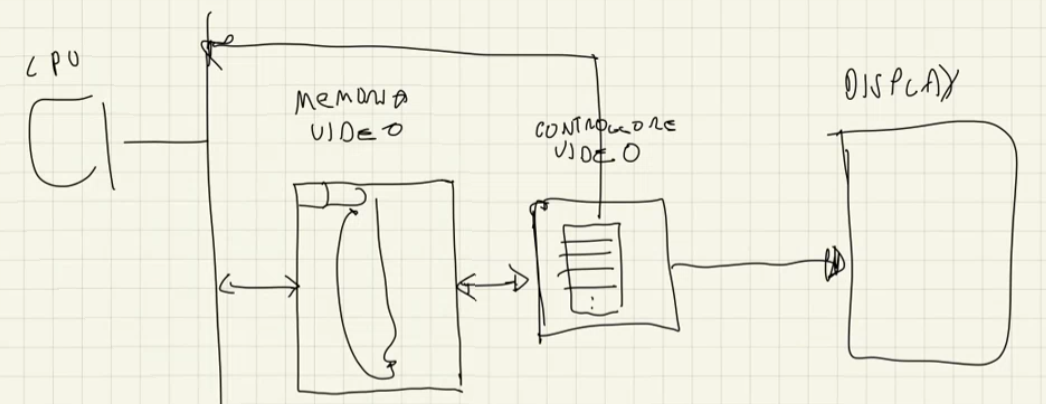 CPU
MEMORIA
VIDEO
CONTROLLORE
VIDEO
DISPLAY